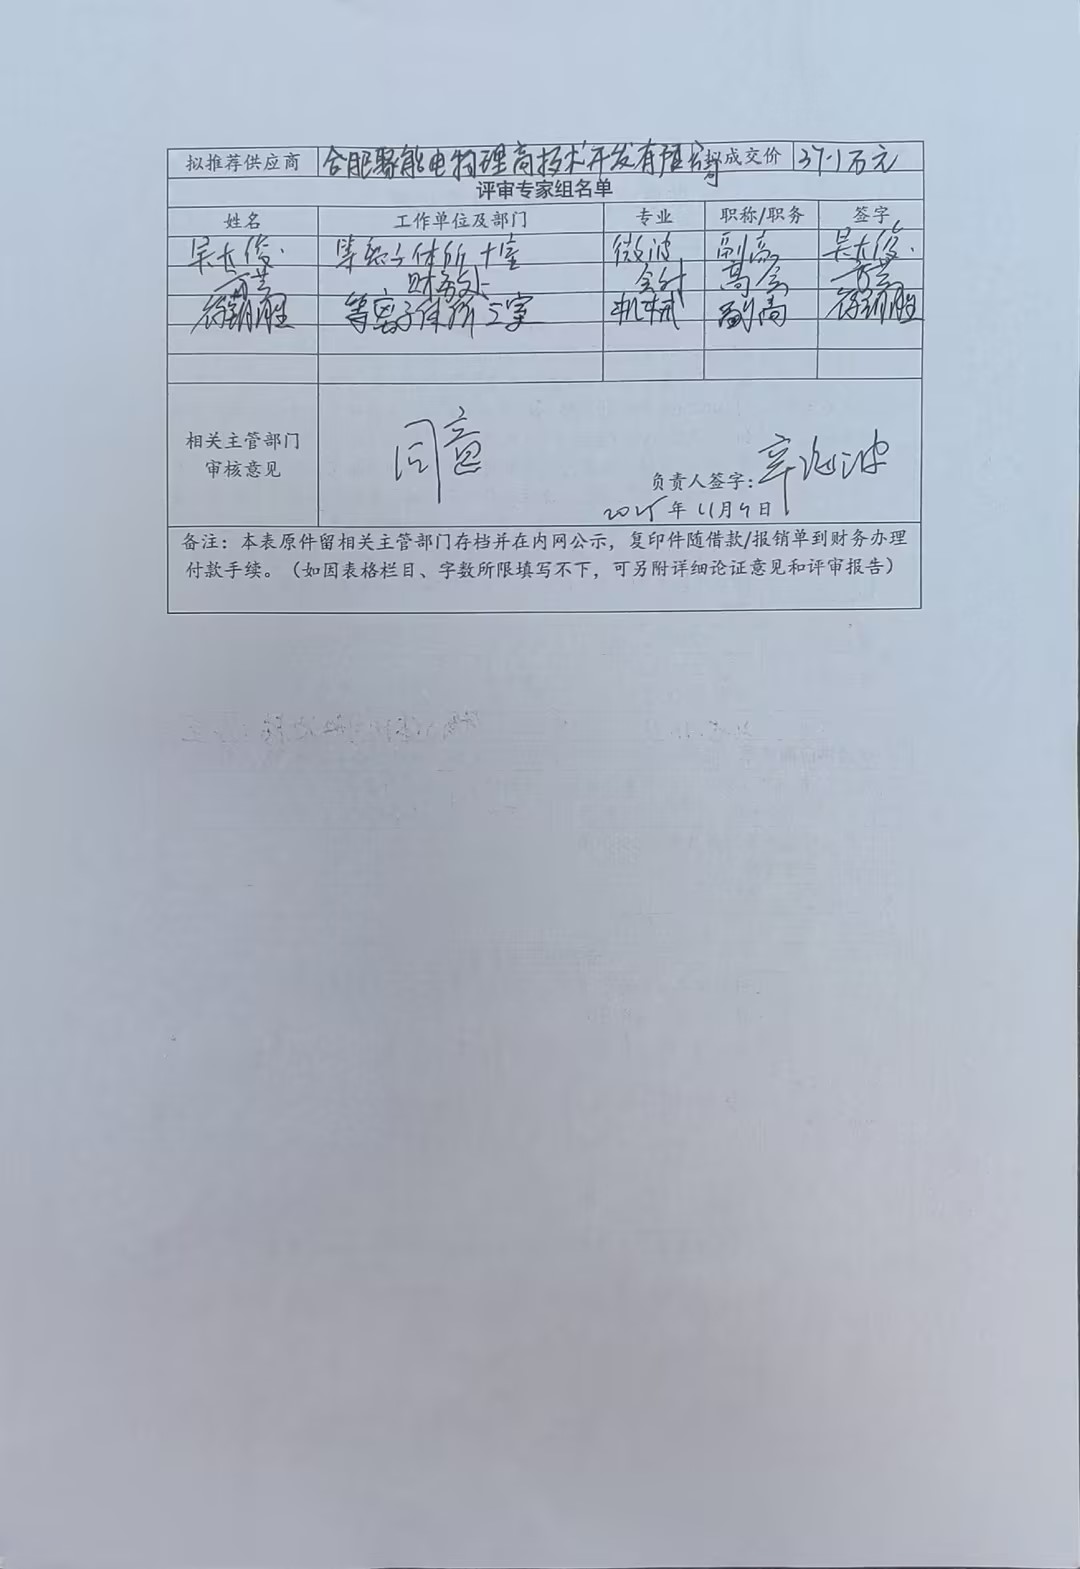 拟推荐供应商 合肥聚能电物理高技术开发有限公司 拟成交价 37.1万元
评审专家组名单
姓名 工作单位及部门 专业 职称/职务 签字
吴大俊 等离子体所十室 微波 副高 吴大俊
方芸 财务处 会计 高会 方芸
等离子体所三室 机械 副高
相关主管部门
审核意见
同意
负责人签字:
2025年11月9日
备注：本表原件留相关主管部门存档并在内网公示，复印件随借款/报销单到财务办理
付款手续。（如因表格栏目、字数所限填写不下，可另附详细论证意见和评审报告）